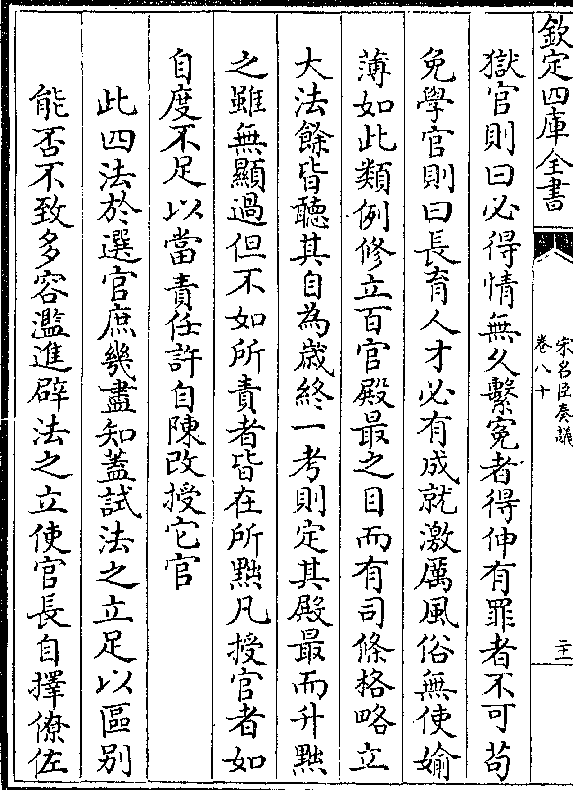 欽定四庫全書
宋名臣奏議
卷八十
二十一
獄官則曰必得情無久繫冤者得伸有罪者不可苟
免學官則曰長育人才必有成就激厲風俗無使媮
薄如此類例修立百官殿最之目而有司條格略立
大法餘皆聽其自為歲終一考則定其殿最而升黜
之雖無顯過但不如所責者皆在所黜凡授官者如
自度不足以當責任許自陳改授它官
此四法於選官庶幾盡知蓋試法之立足以區别
能否不致多容濫進辟法之立使官長自擇僚佐